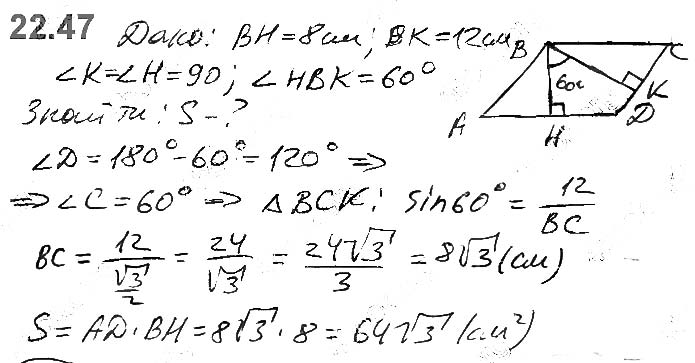 22.47 Дано: BH = 8 см; BK = 12 см
∠K = ∠H = 90; ∠HBK = 60°
Знайти: S - ?
B C
60°
K
A H D
∠D = 180° - 60° = 120° ⇒
⇒ ∠C = 60° ⇒ △BCK: sin60° = 12/BC
BC = 12/(√3/2) = 24/√3 = 24√3/3 = 8√3 (см)
S = AD · BH = 8√3 · 8 = 64√3 (см²)